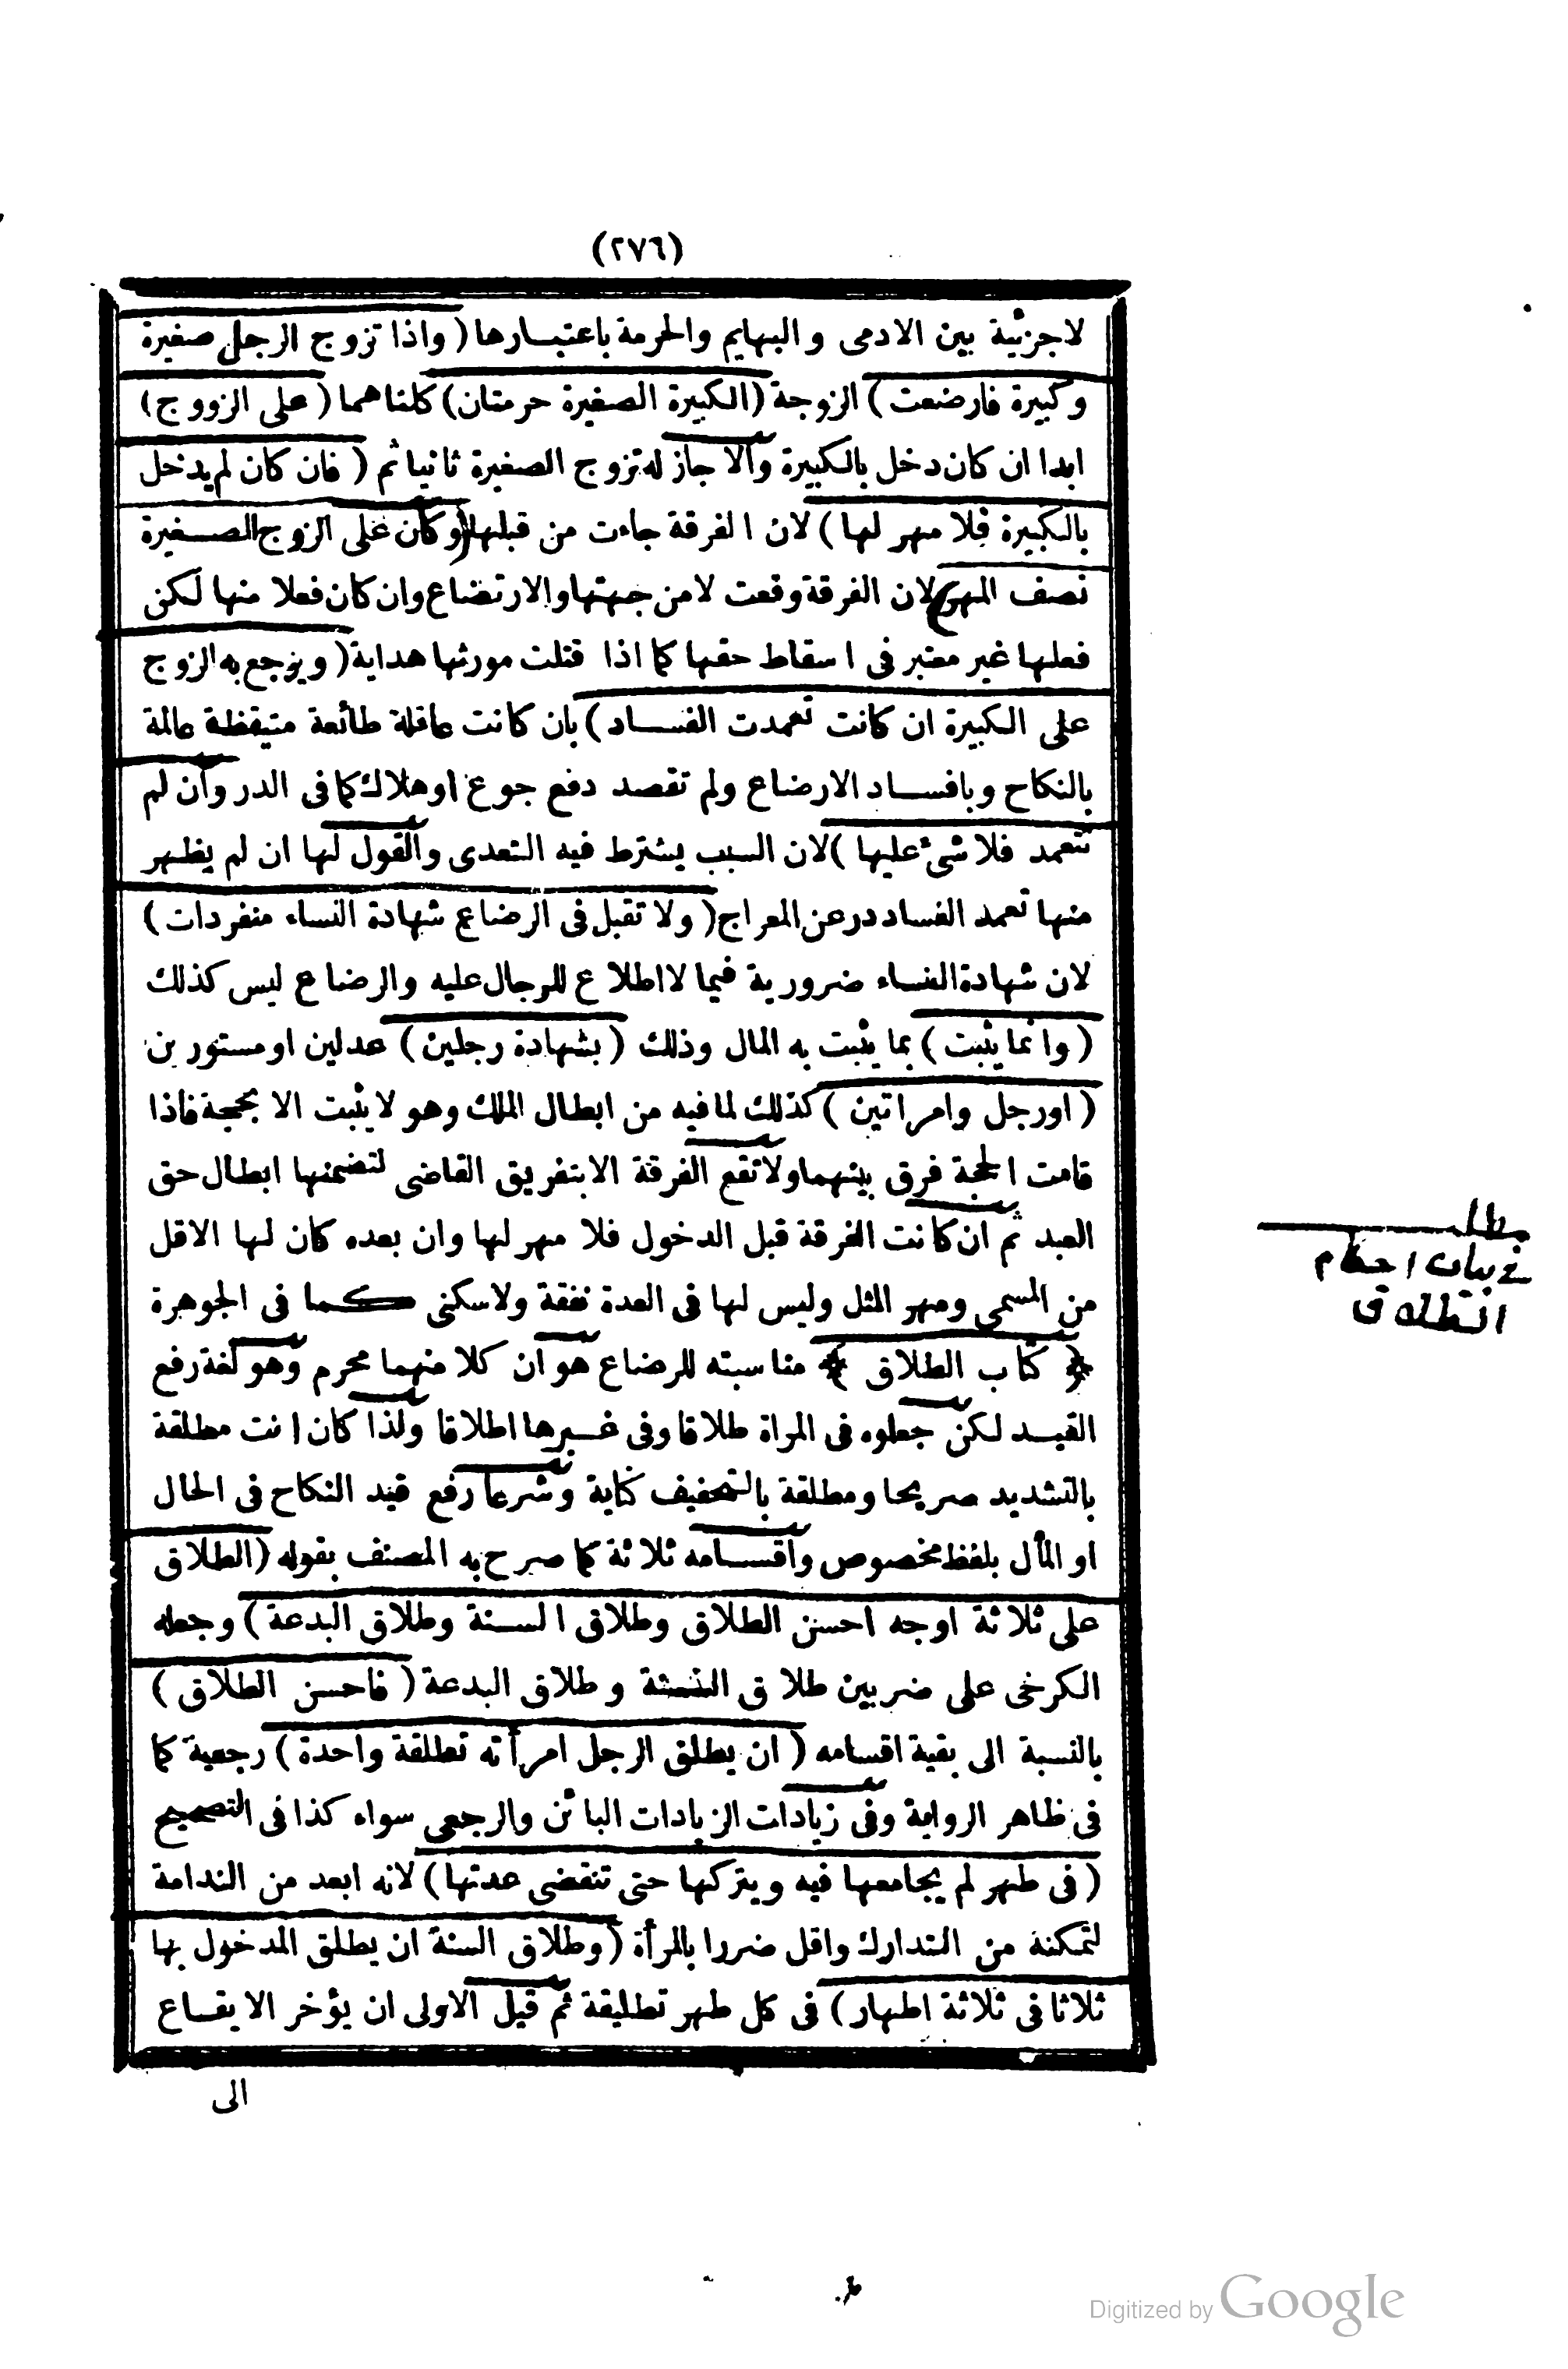 (٢٧٦)
لاجزئية بين الادمى والبهايم والحرمة باعتبارها ( واذا تزوج الرجل صغيرة
وكبيرة فارضعت ) الزوجة ( الكبيرة الصغيرة حرمتان ) كلتاهما ( على الزووج )
ابدا ان كان دخل بالكبيرة والا جاز له تزوج الصغيرة ثانيا ثم ( فان كان لم يدخل
بالكبيرة فلا مهر لها ) لان الفرقة جاءت من قبلها ( وكان على الزوج الصغيرة
نصف المهر ) لان الفرقة وقعت لامن جهتها والارتضاع وان كان فعلا منها لكن
فعلها غير معتبر فى اسقاط حقها كما اذا قتلت مورثها هداية ( ويرجع به الزوج
على الكبيرة ان كانت تعمدت الفساد ) بان كانت عاقلة طائعة متيقظة عالمة
بالنكاح وبافساد الارضاع ولم تقصد دفع جوع اوهلاك كما فى الدر وان لم
تتعمد فلا شئ عليها ) لان السبب يشترط فيه التعدى والقول لها ان لم يظهر
منها تعمد الفساد در عن المعراج ( ولا تقبل فى الرضاع شهادة النساء منفردات )
لان شهادة النساء ضرورية فيما لااطلاع للرجال عليه والرضاع ليس كذلك
( وانما يثبت ) بما يثبت به المال وذلك ( بشهادة رجلين ) عدلين اومستورين
( اورجل وامراتين ) كذلك لمافيه من ابطال الملك وهو لايثبت الا بحجة فاذا
قامت الحجة فرق بينهما ولاتقع الفرقة الابتفريق القاضى لتضمنها ابطال حق
العبد ثم ان كانت الفرقة قبل الدخول فلا مهر لها وان بعده كان لها الاقل
من المسمى ومهر المثل وليس لها فى العدة نفقة ولاسكنى كما فى الجوهرة
﴿ كتاب الطلاق ﴾ مناسبته للرضاع هو ان كلا منهما محرم وهو لغة رفع
القيد لكن جعلوه فى المراة طلاقا وفى غيرها اطلاقا ولذا كان انت مطلقة
بالتشديد صريحا ومطلقة بالتخفيف كناية وشرعا رفع قيد النكاح فى الحال
او المأل بلفظ مخصوص واقسامه ثلاثة كما صرح به المصنف بقوله ( الطلاق
على ثلاثة اوجه احسن الطلاق وطلاق السنة وطلاق البدعة ) وجعله
الكرخى على ضربين طلاق السنة وطلاق البدعة ( فاحسن الطلاق )
بالنسبة الى بقية اقسامه ( ان يطلق الرجل امرأته تطلقة واحدة ) رجعية كما
فى ظاهر الرواية وفى زيادات الزيادات البائن والرجعى سواء كذا فى التصحيح
( فى طهر لم يجامعها فيه ويتركها حتى تنقضى عدتها ) لانه ابعد من الندامة
لتمكنه من التدارك واقل ضررا بالمرأة ( وطلاق السنة ان يطلق المدخول بها
ثلاثا فى ثلاثة اطهار ) فى كل طهر تطليقة ثم قيل الاولى ان يؤخر الايقاع
الى
مطلب
فى بيان احكام
الطلاق
Digitized by Google